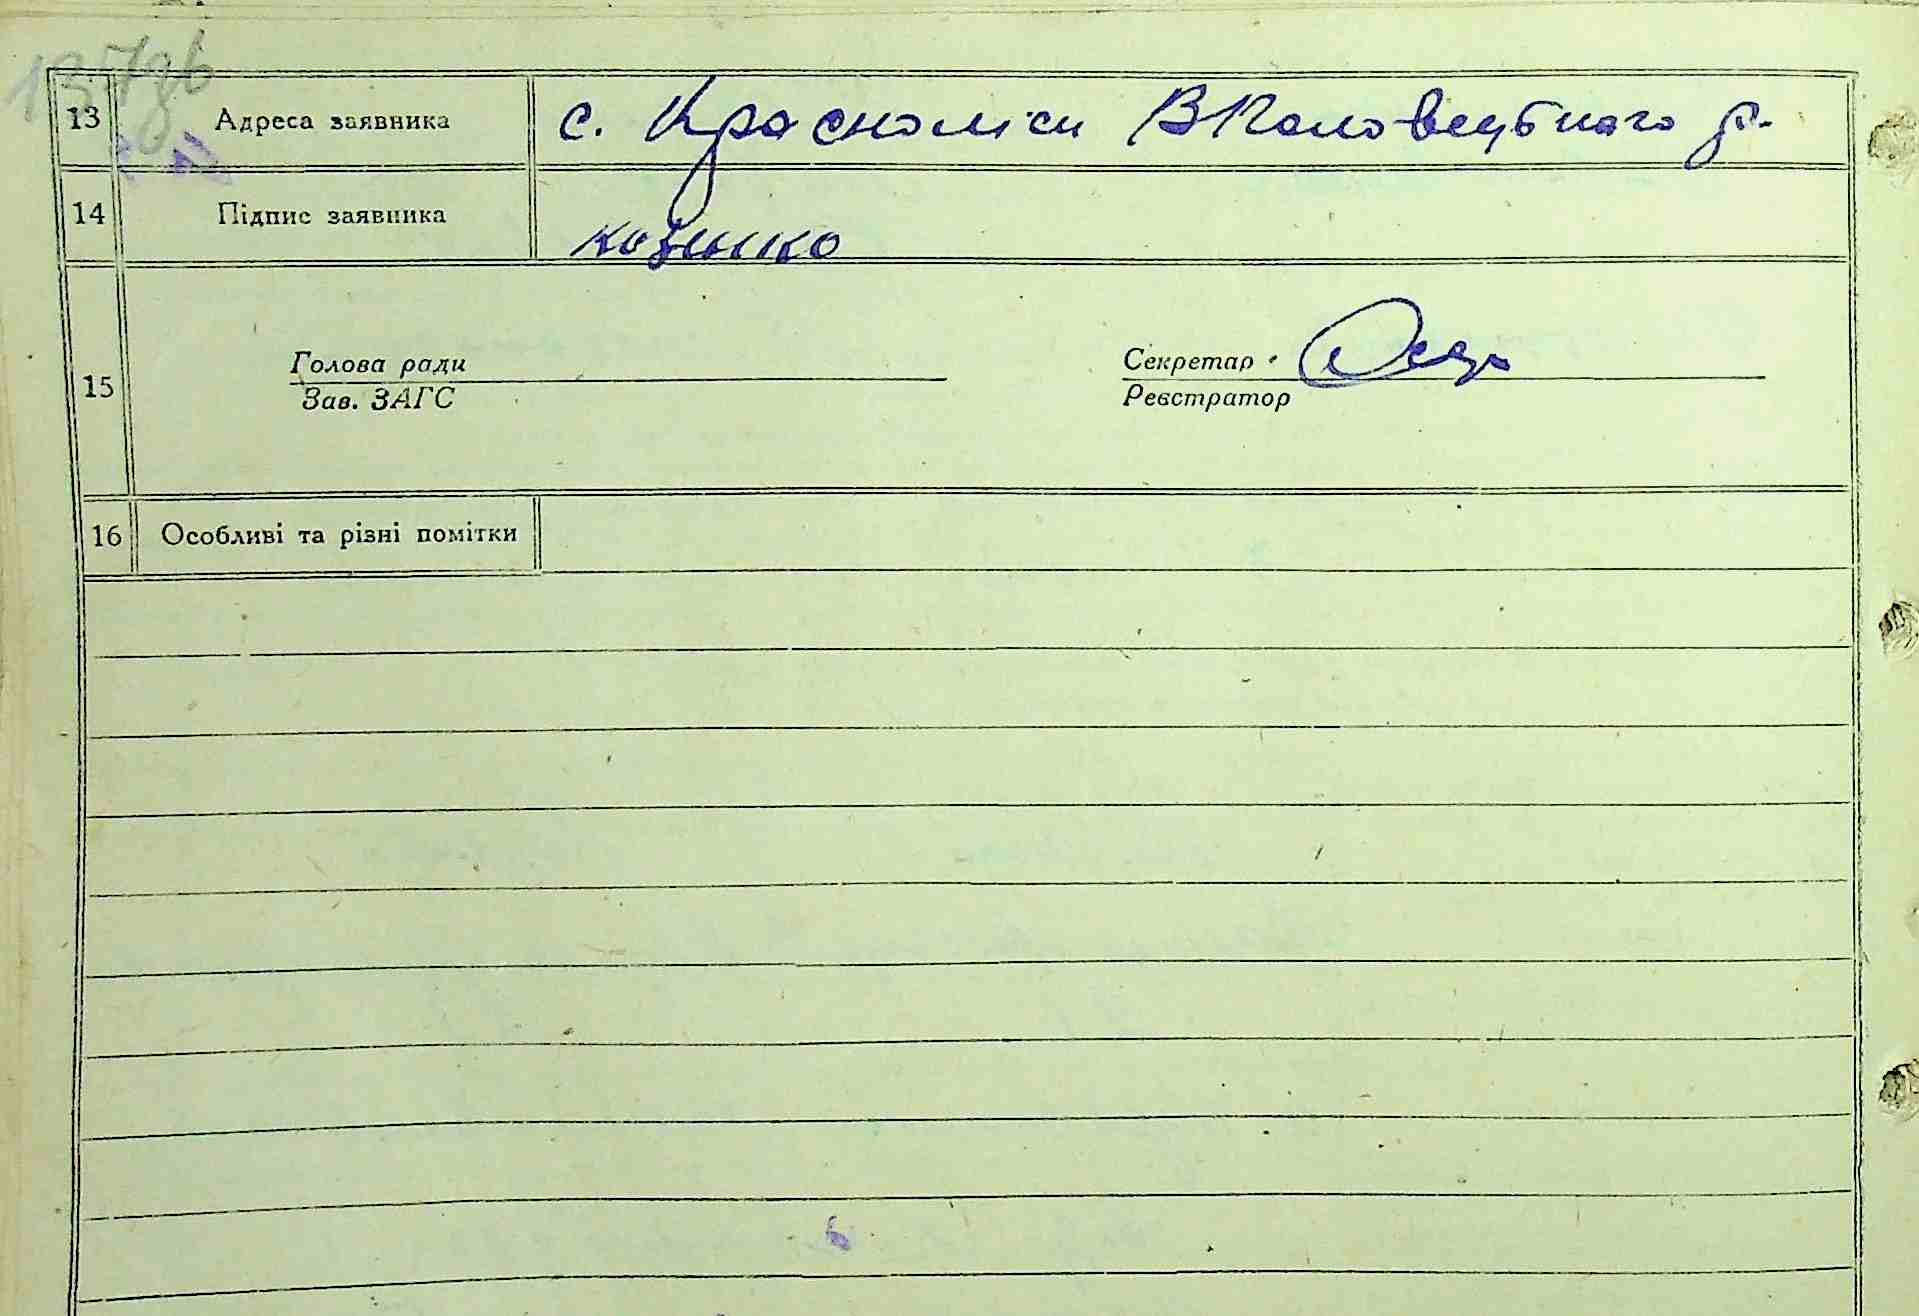 13 Адреса заявника с. Красноліси В Половецького р.
14 Підпис заявника козенко
Голова ради Секретар
15
Зав. ЗАГС Реєстратор
16 Особливі та різні помітки